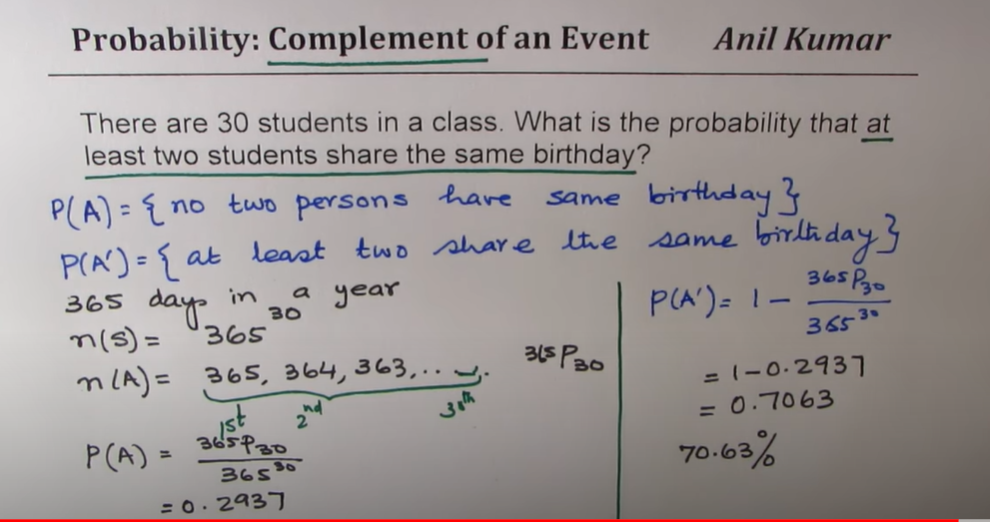 Probability: Complement of an Event Anil Kumar
There are 30 students in a class. What is the probability that at
least two students share the same birthday?
P(A) = { no two persons have same birthday }
P(A') = { at least two share the same birthday }
365 days in a year
n(S) = 365³⁰
n(A) = 365, 364, 363, ...
1st 2nd 30th
365P₃₀
P(A) = 365P₃₀
365³⁰
= 0.2937
P(A') = 1 - 365P₃₀
365³⁰
= 1 - 0.2937
= 0.7063
70.63%